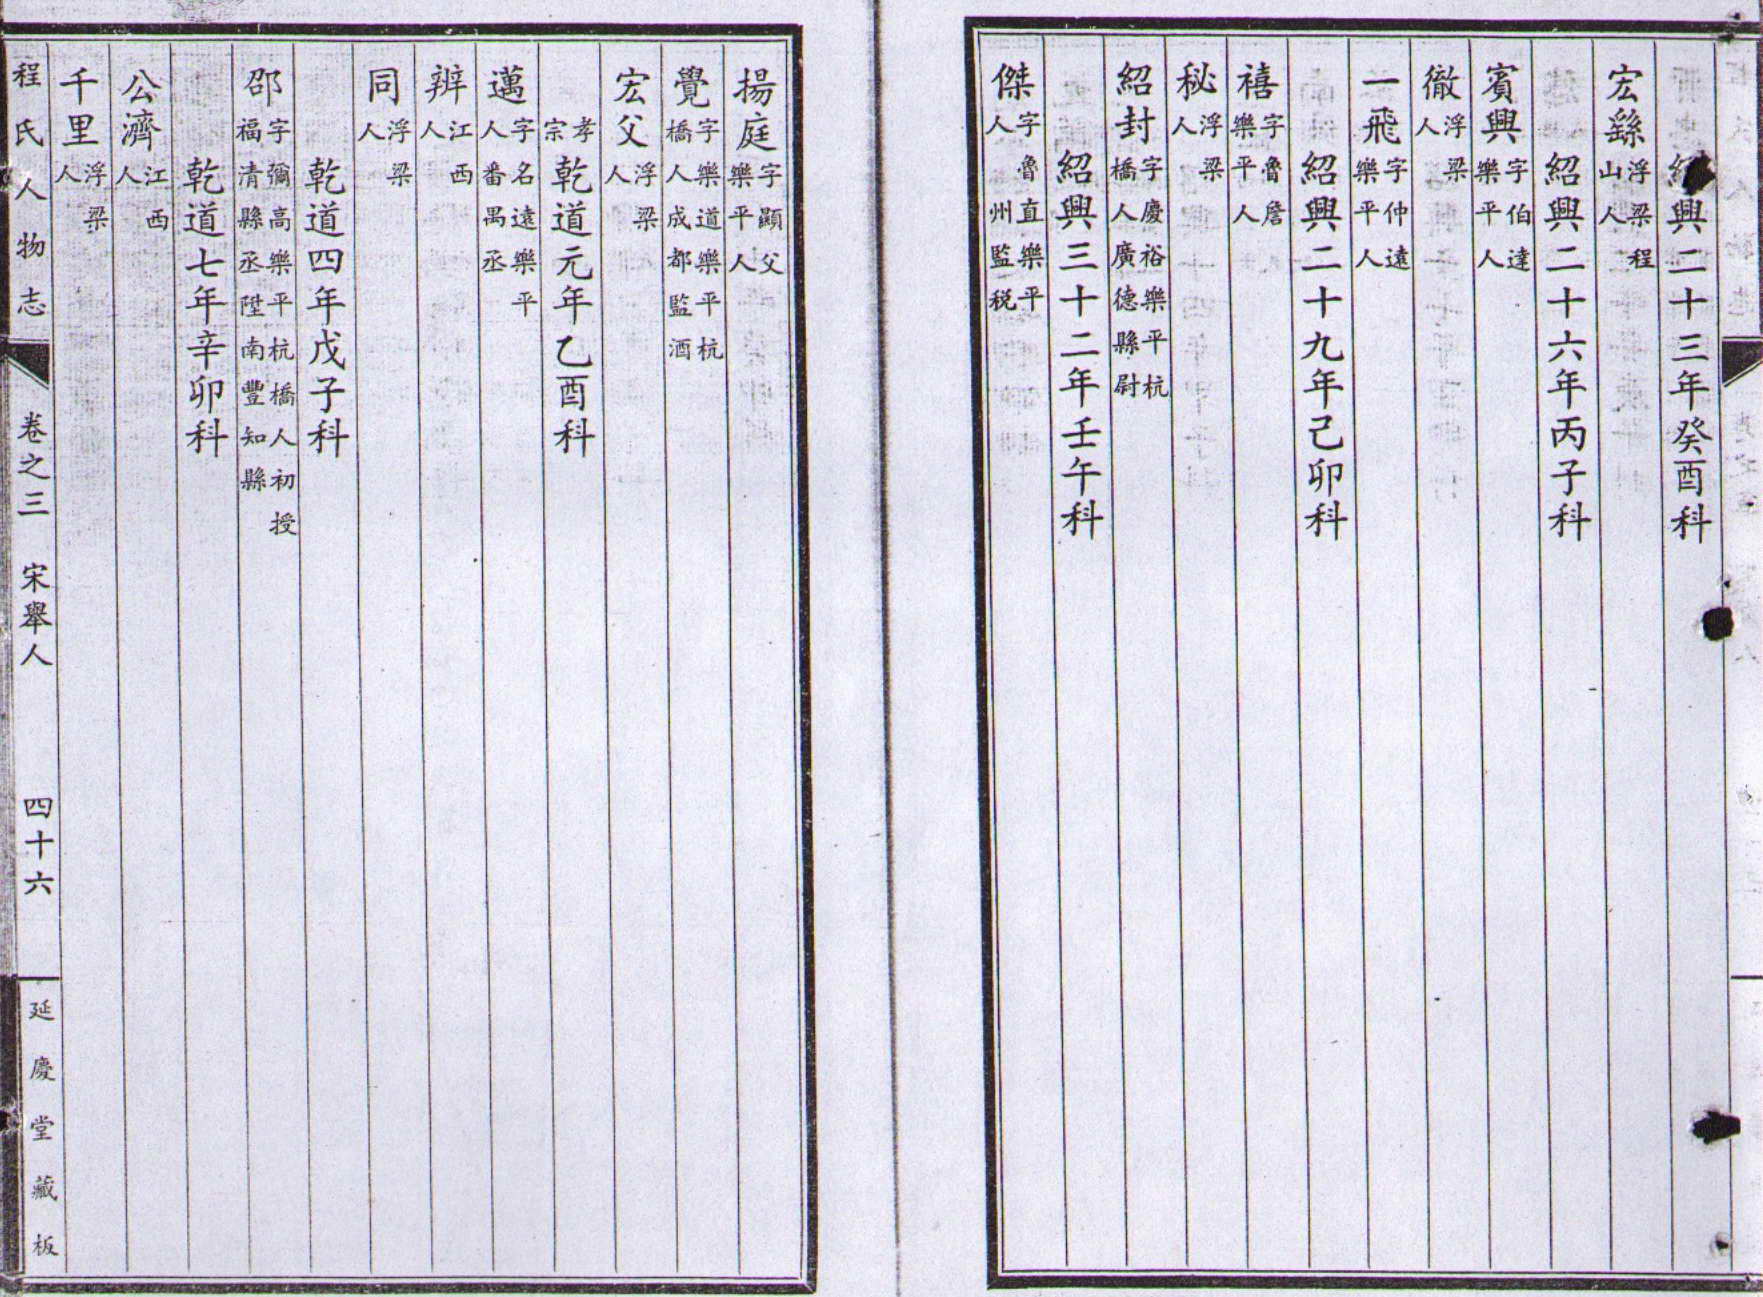 紹興二十三年癸酉科
宏繇浮梁程山人
紹興二十六年丙子科
賓興字伯達樂平人
徹浮梁人
一飛字仲遠樂平人
紹興二十九年己卯科
禧字魯詹樂平人
秘浮梁人
紹封字慶裕樂平杭橋人廣德縣尉
紹興三十二年壬午科
傑字魯直樂平人州監税
揚庭字顯父樂平人
覺字樂道樂平杭橋人成都監酒
宏父浮梁人
孝宗乾道元年乙酉科
邁字名遠樂平人番禺丞
辨江西人
同浮梁人
乾道四年戊子科
邵字彌高樂平杭橋人初授福清縣丞陞南豐知縣
乾道七年辛卯科
公濟江西人
千里浮梁人
程氏人物志 卷之三 宋舉人 四十六 延慶堂藏板